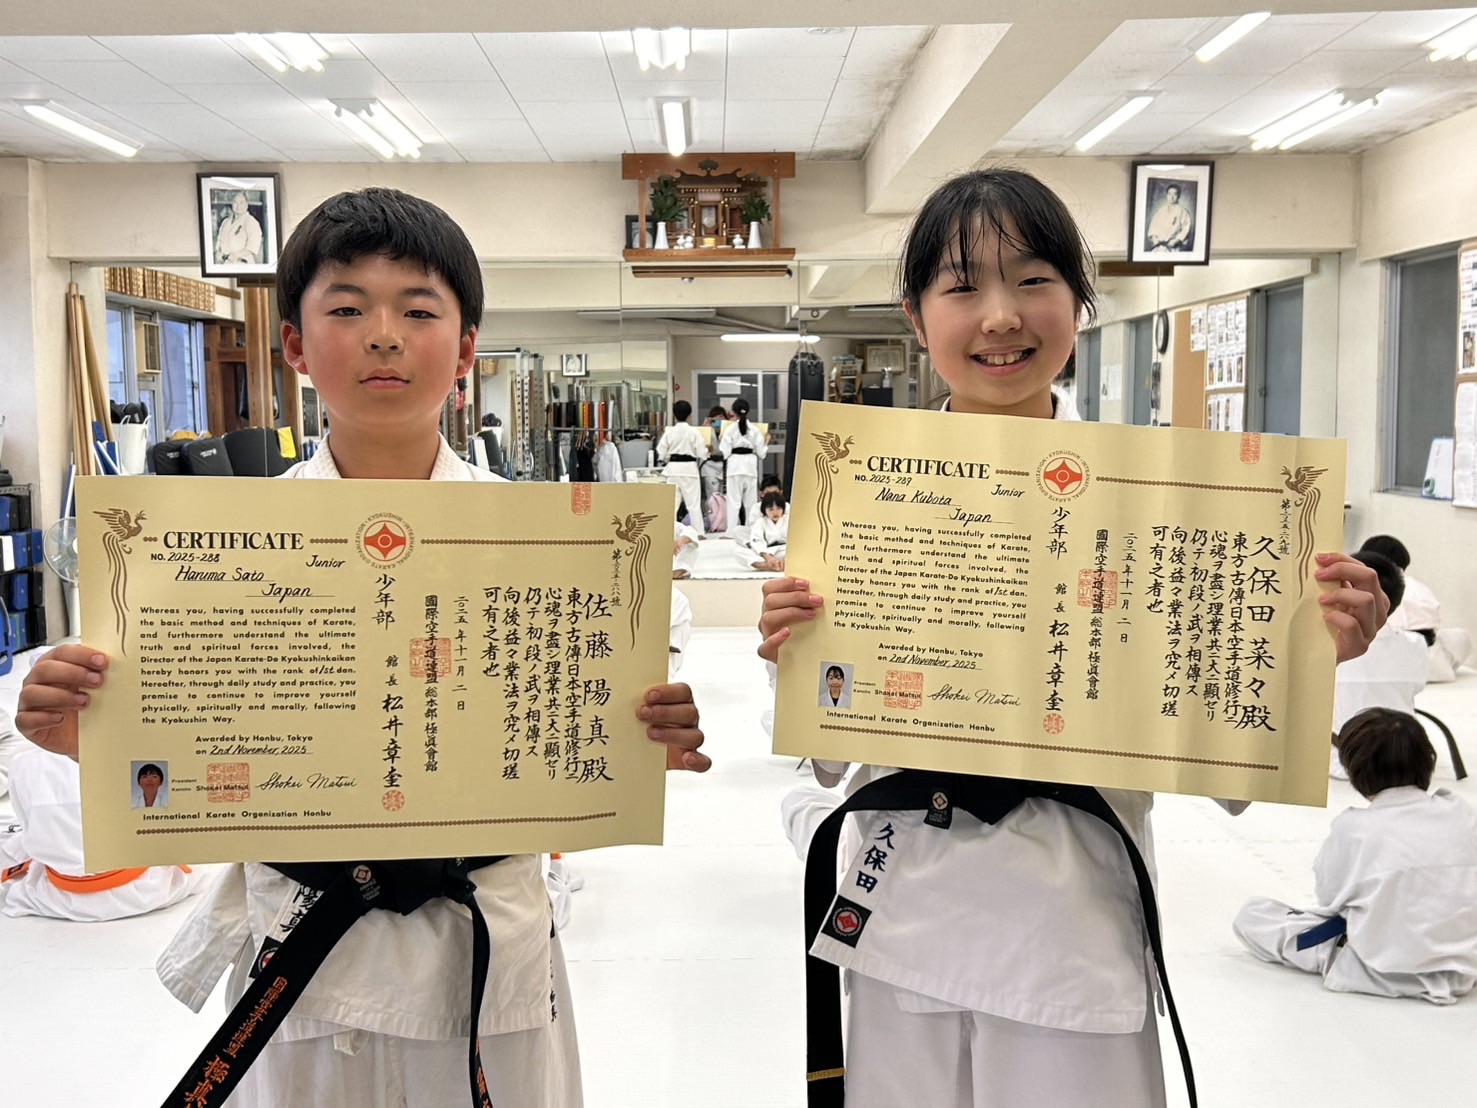 CERTIFICATE
NO. 2025-288
Junior
Haruma Sato
Japan
Whereas you, having successfully completed
the basic method and techniques of Karate,
and furthermore understand the ultimate
truth and spiritual forces involved, the
Director of the Japan Karate-Do Kyokushinkaikan
hereby honors you with the rank of 1st dan.
Hereafter, through daily study and practice, you
promise to continue to improve yourself
physically, spiritually and morally, following
the Kyokushin Way.
Awarded by Honbu, Tokyo
on 2nd November, 2025
President
Kancho Shokei Matsui
Shokei Matsui
International Karate Organization Honbu
佐藤陽真殿
東方古傳日本空手道修行ニ
心魂ヲ盡シ理業共ニ大ニ顯ゼリ
仍テ初段ノ武ヲ相傳ス
向後益々業法ヲ究メ切瑳
可有之者也
二〇二五年十一月二日
國際空手道連盟総本部極眞會館
少年部 館長 松井章奎
CERTIFICATE
NO. 2025-289
Junior
Nana Kubota
Japan
Whereas you, having successfully completed
the basic method and techniques of Karate,
and furthermore understand the ultimate
truth and spiritual forces involved, the
Director of the Japan Karate-Do Kyokushinkaikan
hereby honors you with the rank of 1st dan.
Hereafter, through daily study and practice, you
promise to continue to improve yourself
physically, spiritually and morally, following
the Kyokushin Way.
Awarded by Honbu, Tokyo
on 2nd November, 2025
President
Kancho Shokei Matsui
Shokei Matsui
International Karate Organization Honbu
久保田菜々殿
東方古傳日本空手道修行ニ
心魂ヲ盡シ理業共ニ大ニ顯ゼリ
仍テ初段ノ武ヲ相傳ス
向後益々業法ヲ究メ切瑳
可有之者也
二〇二五年十一月二日
國際空手道連盟総本部極眞會館
少年部 館長 松井章奎
久保田